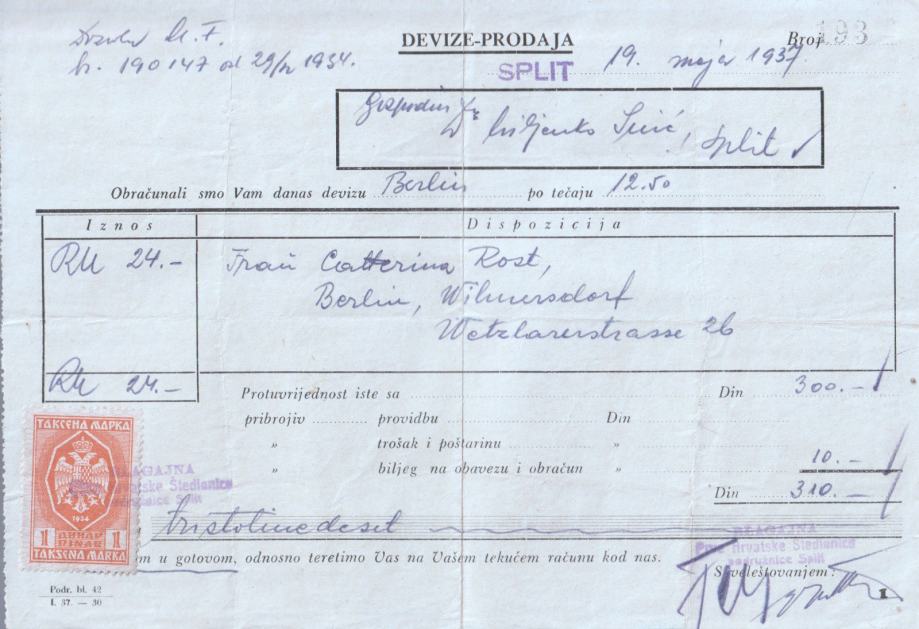 DEVIZE-PRODAJA
Broj 193
br. 190147 od 29/X 1934.
SPLIT 19. maja 1937.
Gospodin Dr Miljenko Suić, Split
Obračunali smo Vam danas devizu Berlin po tečaju 12.50
Iznos Dispozicija
RM 24.- Frau Catterina Rost,
Berlin, Wilmersdorf
Wetzlarerstrasse 26
RM 24.-
Protuvrijednost iste sa Din 300.-
pribrojiv providbu Din
„ trošak i poštarinu „
„ biljeg na obavezu i obračun „ 10.-
Din 310.-
ТАКСЕНА МАРКА
1934
1 ДИНАР DINAR 1
TAKSENA MARKA
BLAGAJNA
Hrvatske Štedionice
podružnice Split
tristotinedeset
m u gotovom, odnosno teretimo Vas na Vašem tekućem računu kod nas.
BLAGAJNA
Prve Hrvatske Štedionice
podružnice Split
S veleštovanjem:
1
Podr. bl. 42
I. 37. — 30